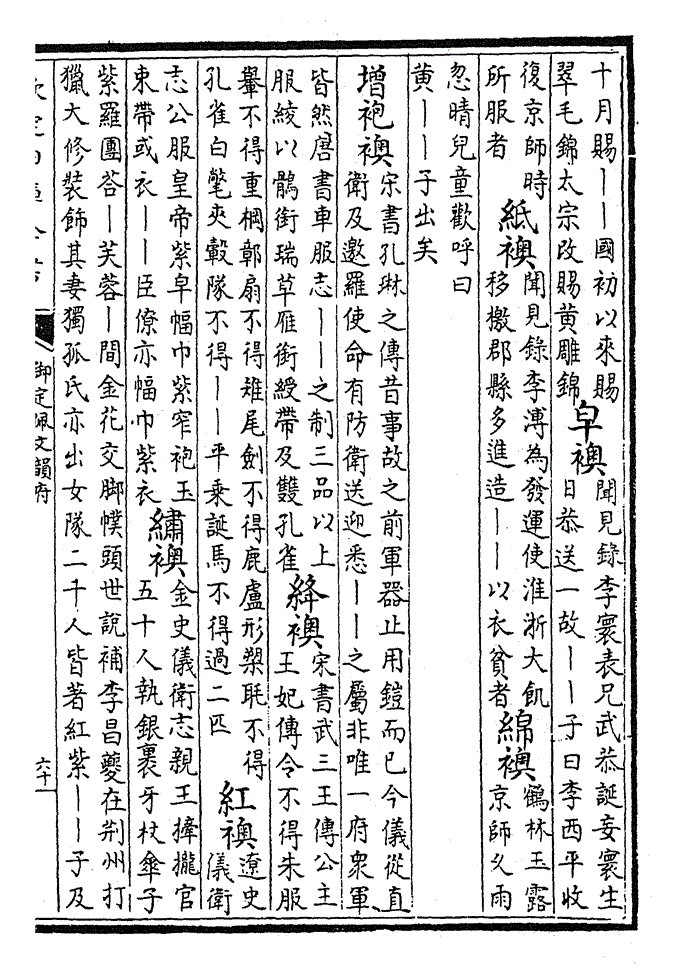 十月賜——國初以來賜
翠毛錦太宗改賜黃雕錦
皁襖
聞見錄李寰表兄武恭誕妄寰生
日恭送一故——子曰李西平收
復京師時
所服者
紙襖
聞見錄李溥為發運使淮浙大飢
移檄郡縣多進造——以衣貧者
綿襖
鶴林玉露
京師久雨
忽晴兒童歡呼曰
黃——子出矣
增袍襖
宋書孔琳之傳昔事故之前軍器止用鎧而已今儀從直
衛及邀羅使命有防衛送迎悉——之屬非唯一府衆軍
皆然唐書車服志——之制三品以上
服綾以鶻銜瑞草雁銜綬帶及雙孔雀
絳襖
宋書武三王傳公主
王妃傳令不得朱服
轝不得重棡鄣扇不得雉尾劍不得鹿盧形槊毦不得
孔雀白氅夾轂隊不得——平乘誕馬不得過二匹
紅襖
遼史
儀衛
志公服皇帝紫皁幅巾紫窄袍玉
束帶或衣——臣僚亦幅巾紫衣
繡襖
金史儀衛志親王捧攏官
五十人執銀裹牙杖傘子
紫羅團荅—芙蓉—間金花交脚幞頭世說補李昌夔在荆州打
獵大修裝飾其妻獨孤氏亦出女隊二千人皆著紅紫——子及
欽定四庫全書
御定佩文韻府
六十